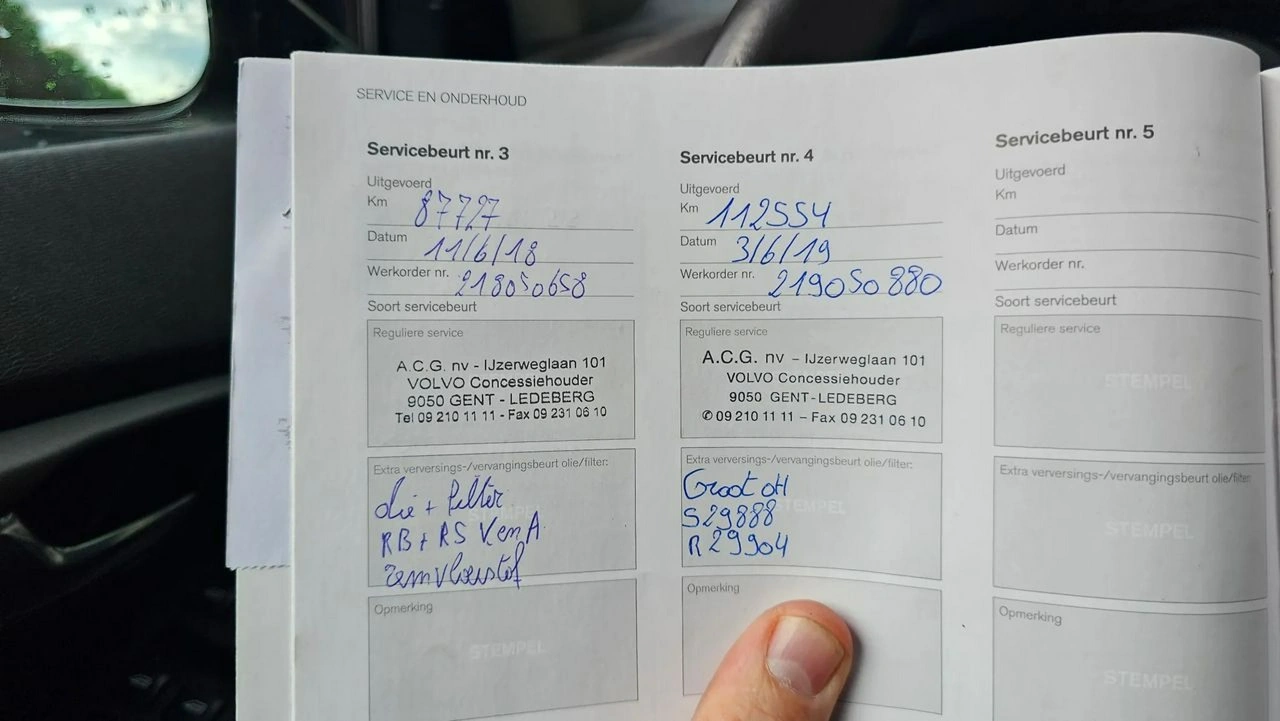 SERVICE EN ONDERHOUD
Servicebeurt nr. 3
Uitgevoerd
Km 87727
Datum 11/6/18
Werkorder nr. 218050658
Soort servicebeurt
Reguliere service
A.C.G. nv - IJzerweglaan 101
VOLVO Concessiehouder
9050 GENT - LEDEBERG
Tel 09 210 11 11 - Fax 09 231 06 10
Extra verversings-/vervangingsbeurt olie/filter:
olie + filter
RB + RS V en A
remvloeistof
Opmerking
STEMPEL
Servicebeurt nr. 4
Uitgevoerd
Km 112554
Datum 3/6/19
Werkorder nr. 219050880
Soort servicebeurt
Reguliere service
A.C.G. nv – IJzerweglaan 101
VOLVO Concessiehouder
9050 GENT - LEDEBERG
✆ 09 210 11 11 – Fax 09 231 06 10
Extra verversings-/vervangingsbeurt olie/filter:
STEMPEL
Groot OH
S29888
R29904
Opmerking
Servicebeurt nr. 5
Uitgevoerd
Km
Datum
Werkorder nr.
Soort servicebeurt
Reguliere service
STEMPEL
Extra verversings-/vervangingsbeurt olie/filter:
STEMPEL
Opmerking
STEMPEL